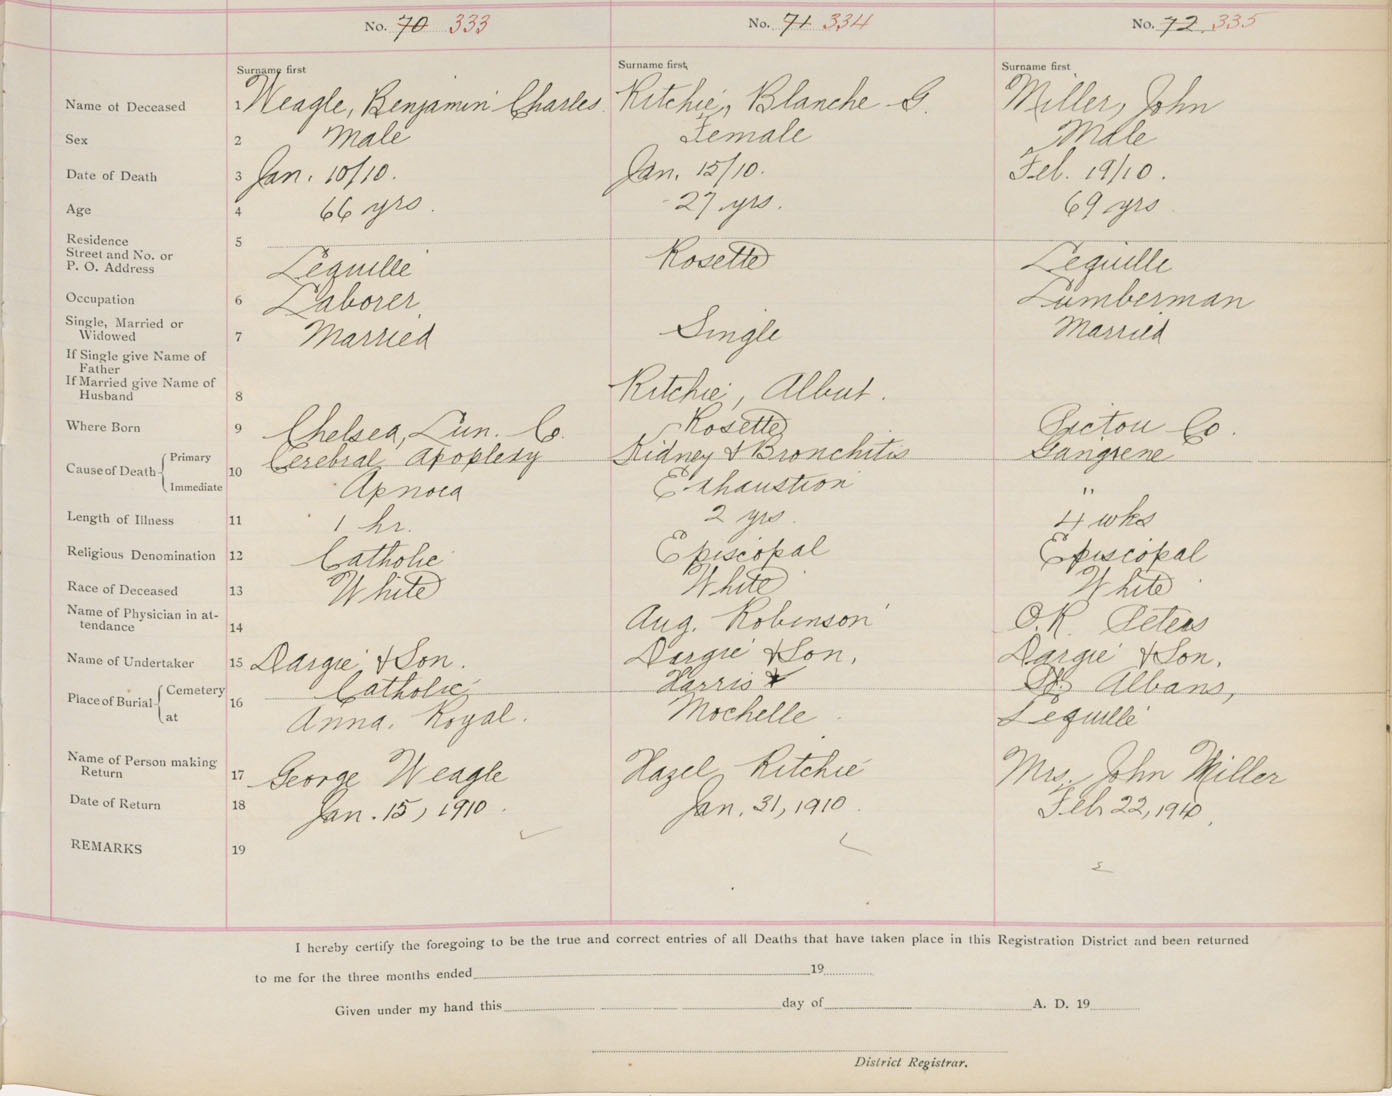 No. 70 333 No. 71 334 No. 72 335
Surname first Surname first Surname first
Name of Deceased 1 Weagle, Benjamin Charles Ritchie, Blanche G. Miller, John
Sex 2 Male Female Male
Date of Death 3 Jan. 10/10. Jan. 15/10. Feb. 19/10.
Age 4 66 yrs. 27 yrs. 69 yrs
Residence 5
Street and No. or
P. O. Address Lequille Rosette Lequille
Occupation 6 Laborer Lumberman
Single, Married or
Widowed 7 Married Single Married
If Single give Name of
Father
If Married give Name of
Husband 8 Ritchie, Albert.
Where Born 9 Chelsea, Lun. Co. Rosette Pictou Co.
Cause of Death Primary 10 Cerebral Apoplexy Kidney & Bronchitis Gangrene
Immediate Apnoea Exhaustion "
Length of Illness 11 1 hr. 2 yrs. 4 wks
Religious Denomination 12 Catholic Episcopal Episcopal
Race of Deceased 13 White White White
Name of Physician in at-
tendance 14 Aug. Robinson O.R. Peters
Name of Undertaker 15 Dargie & Son. Dargie & Son, Dargie & Son,
Place of Burial Cemetery 16 Catholic Harris St. Albans,
at Anna. Royal. Mochelle Lequille
Name of Person making
Return 17 George Weagle Hazel Ritchie Mrs. John Miller
Date of Return 18 Jan. 15, 1910. Jan. 31, 1910. Feb 22, 1910.
REMARKS 19
I hereby certify the foregoing to be the true and correct entries of all Deaths that have taken place in this Registration District and been returned
to me for the three months ended 19
Given under my hand this day of A. D. 19
District Registrar.